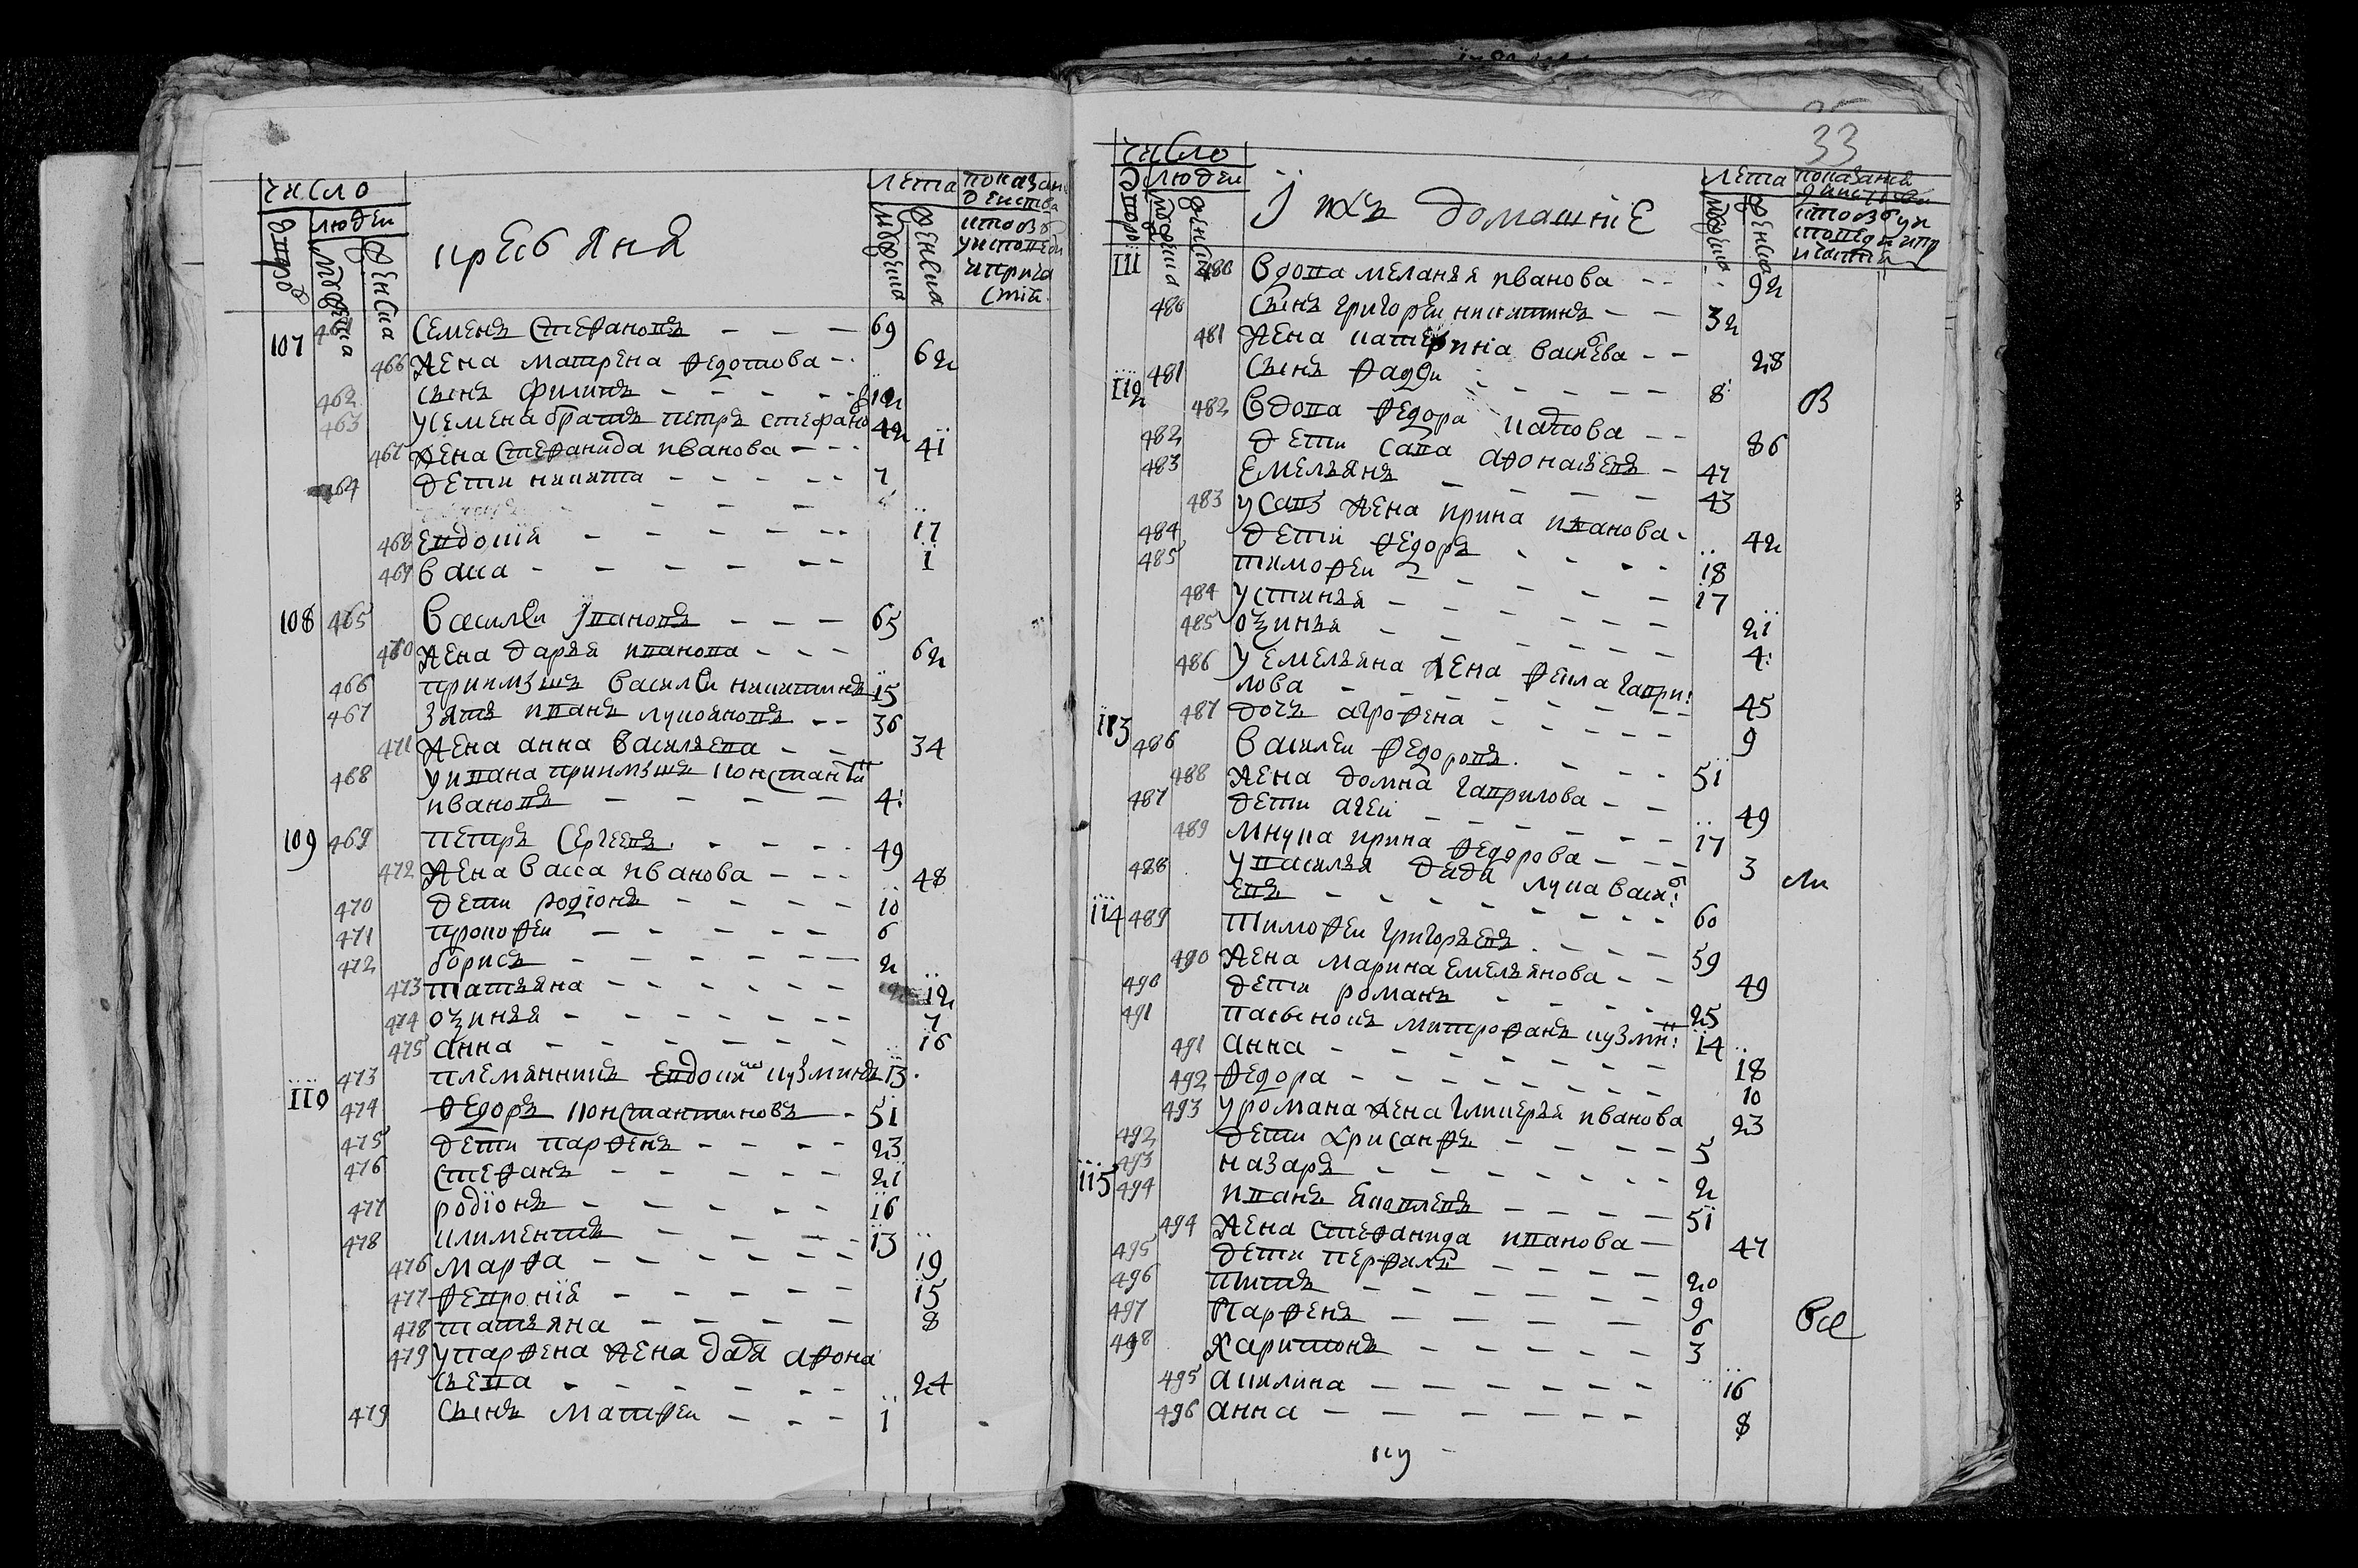 число
дворо людеи
мужеска
женска
крестьяня
лета
мужеска
женска
показан
действа
кто
исповеди
и прича
стия
107 461 Семенъ Стефановъ 69
466 жена матрена федотова 62
462 сынъ филипъ 12
463 у семена братъ петръ стефано 42
467 жена Стефанида иванова 41
464 дети никита 7
468 Евдокия 17
469 васса 1
108 465 Василеи Iвановъ 65
470 жена дарья иванова 62
466 приимышъ василеи никитинъ 15
467 зять иванъ лукояновъ 36
471 жена анна васильева 34
468 у ивана приимышъ константи
ивановъ 4
109 469 петръ Сергеевъ 49
472 жена васса иванова 48
470 дети родионъ 10
471 прокофеи 6
472 борисъ 2
473 татьяна 12
474 оѯинья 7
475 анна 16
473 племянникъ Евдоким кузминъ 13
110 474 Федоръ константиновъ 51
475 дети парфенъ 23
476 Стефанъ 21
477 родионъ 16
478 климентъ 13
476 марфа 19
477 февронiя 15
478 татьяна 8
479 у парфена жена дадя афона
сьева 24
479 Сынъ матфеи 1
33
число
дворо людеи
мужеска
женска
I ихъ домашнiе
лета
мужеска
женска
показания
действа
111 480 Вдова меланья иванова 92
480 Сынъ григореи никитинъ 32
481 жена катерина васильева 28
481 Сынъ фаддеи 8
112 482 Вдова федора 86
В
482 дети сава афонасьевъ 47
483 Емельянъ 43
483 у савы жена ирина иванова 42
484 дети федоръ 18
485 тимофеи 17
484 устинья 21
485 оѯинья 4
486 у емельяна жена фекла гаври
лова 45
487 дочь агрофена 9
113 486 Василеи федоровъ 51
488 жена домна гаврилова 49
487 дети агеи 17
489 мнука ирина федорова 3
488 у василья дядя лука васи
евъ 60
114 489 Тимофеи григорьевъ 59
490 жена марина емельянова 49
490 дети романъ 25
491 пасынокъ митрофанъ кузми 14
491 анна 18
492 федора 10
493 у романа жена гликерья иванова 23
492 дети хрисанфъ 5
493 назаръ 2
115 494 иванъ яковлевъ 51
494 жена стефанида иванова 47
495 дети перфилъ 20
496 титъ 9
497 Парфенъ 6
Все
498 Харитонъ 3
495 акилина 16
496 анна 8